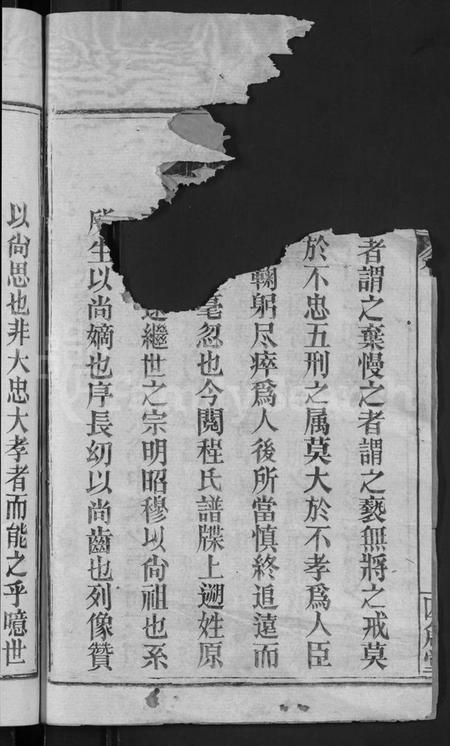 者謂之棄慢之者謂之褻無將之戒莫
於不忠五刑之属莫大於不孝爲人臣
鞠躬尽瘁爲人後所當慎終追遠而
毫忽也今閱程氏譜牒上遡姓原
繼世之宗明昭穆以尙祖也系
所生以尙嫡也序長幼以尙齒也列像贊
以尙思也非大忠大孝者而能之乎噫世